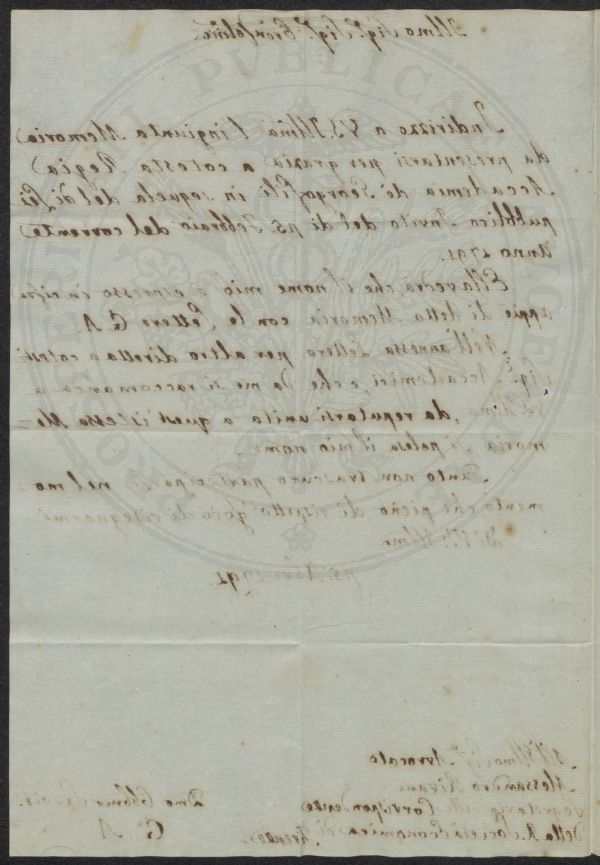 Illmo Sigr. Sigr. Pron Colmo
Indirizzo a V.S. Illma l'ingiunta Memoria
da presentarsi per grazia a cotesta Regia
Accademia de' Georgofili in sequela del di Lei
pubblico Invito del dì 25 Febbraio del corrente
anno 1791.
Ella vedrà, che il nome mio è espresso in cifra
appiè di detta Memoria con le Lettere G. A.
Nell'annessa Lettera per altro diretta a cotesti
Sigri. Accademici, e che da me si raccomanda a
V.S. Illma, da reputarsi unita a quest'istessa Me-
moria si palesa il mio nome.
Tanto non trascuro partecipare nel mo-
mento che pieno di rispetto godo di rassegnarmi
Di V.S. Illma
1791
Al Illmo Sigr. Avvocato
Alessandro Rivani
Segretario delle Corrispondenze
della R. Società Economica di Firenze
Dmo Obbmo
G. A.